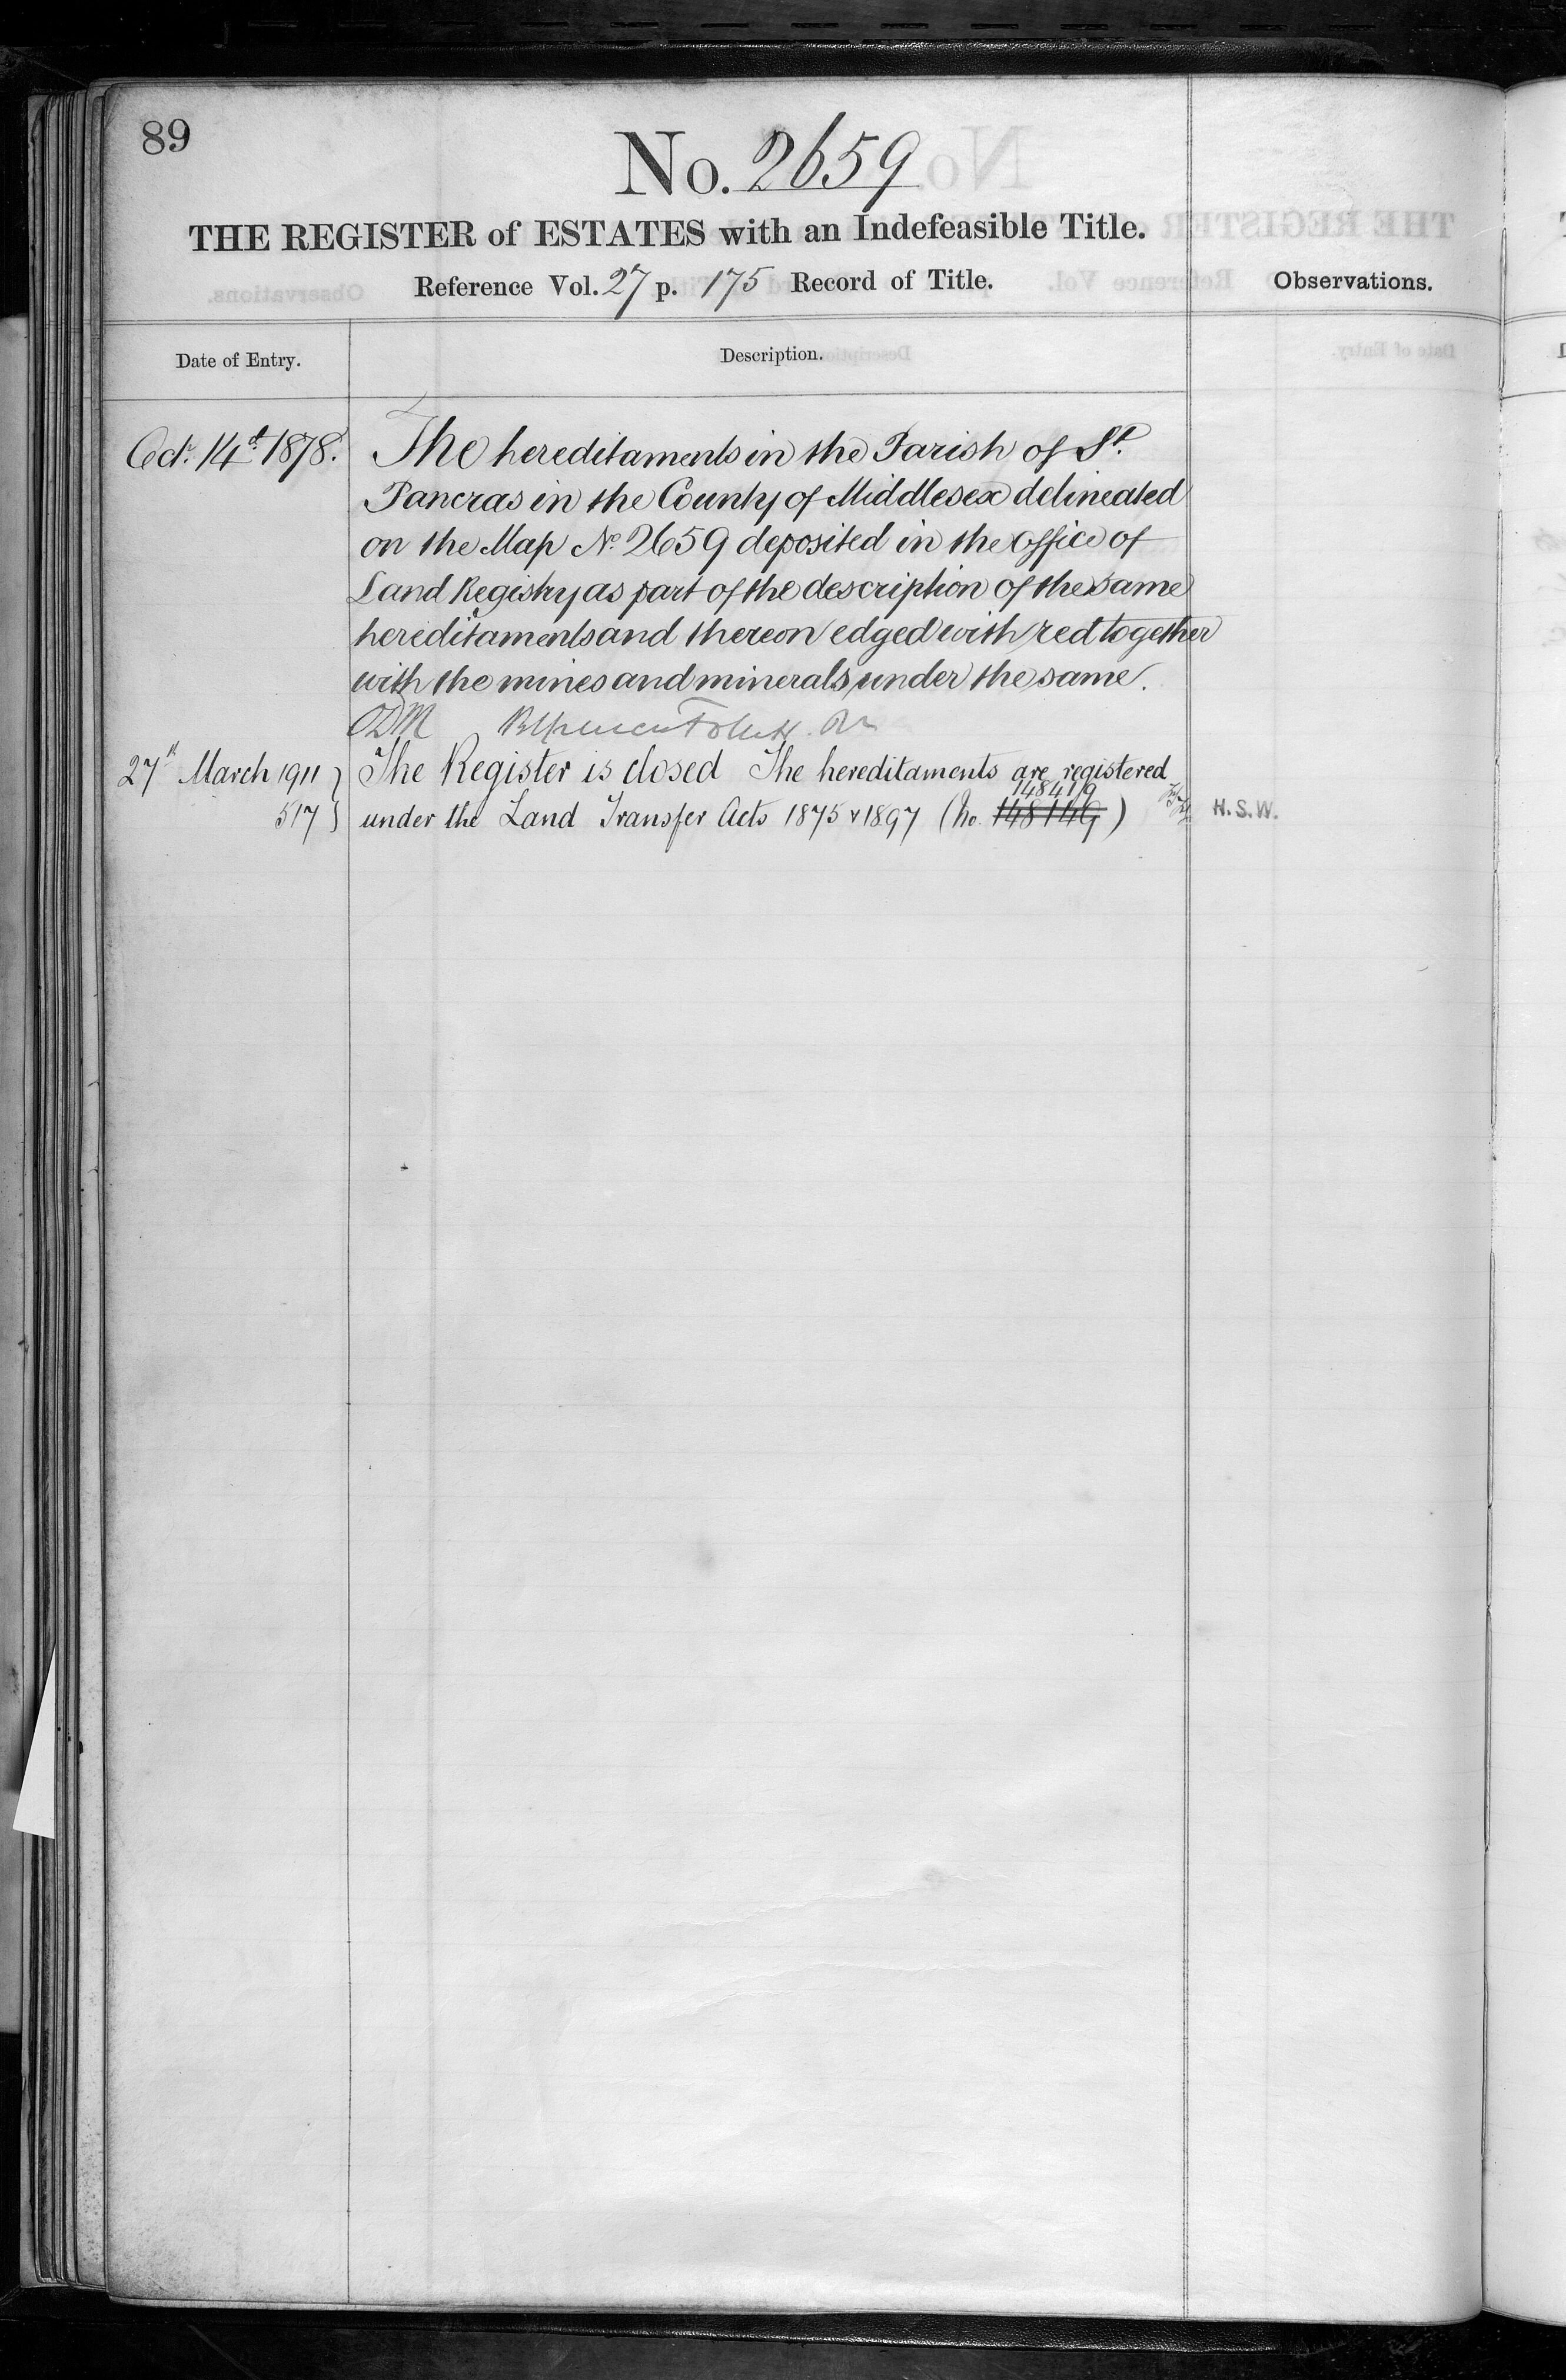 89
No. 2659
THE REGISTER of ESTATES with an Indefeasible Title.
Reference Vol. 27 p. 175 Record of Title.
Observations.
Date of Entry.
Description.
Oct. 14th 1878.
The hereditaments in the Parish of St.
Pancras in the County of Middlesex delineated
on the Map No. 2659 deposited in the office of
Land Registry as part of the description of the same
hereditaments and thereon edged with red together
with the mines and minerals under the same.
27th March 1911
517
The Register is closed The hereditaments are registered
148419
under the Land Transfer Acts 1875 & 1897 (No. 148149)
H.S.W.